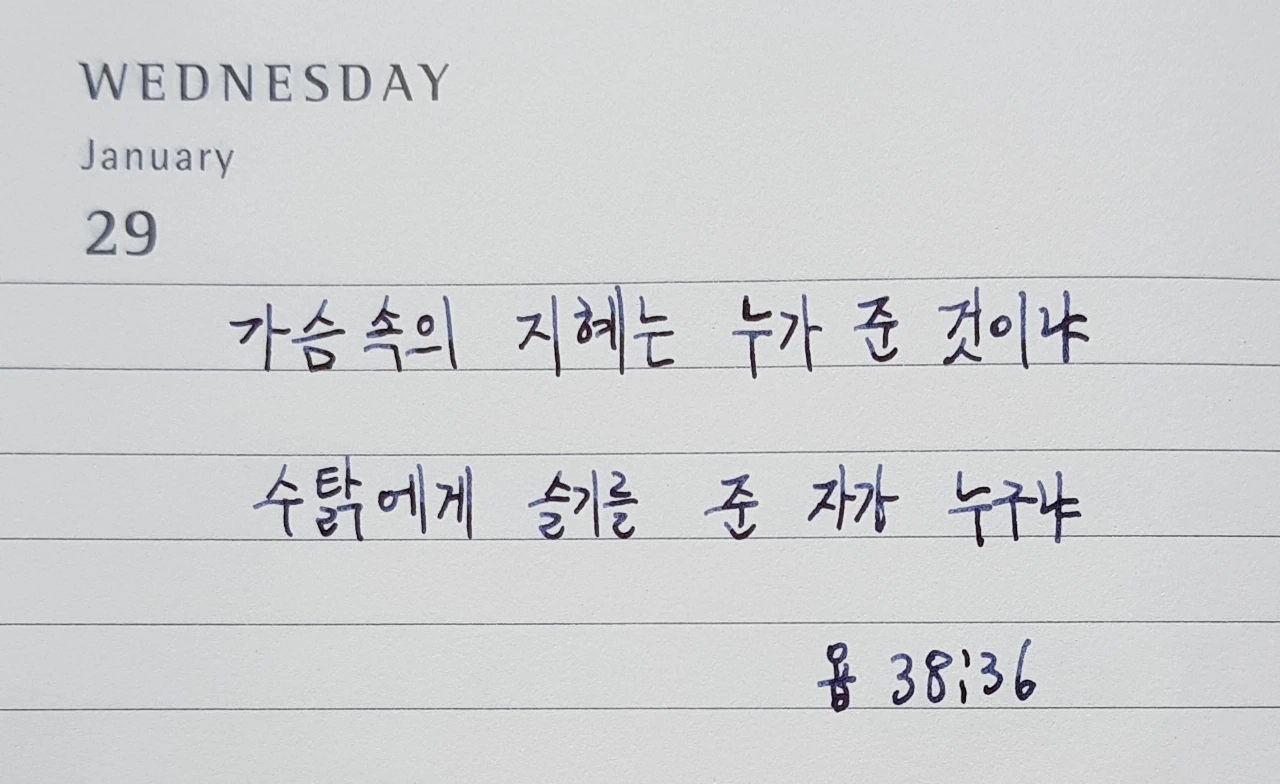 WEDNESDAY
January
29
가슴 속의 지혜는 누가 준 것이냐
수탉에게 슬기를 준 자가 누구냐
욥 38:36